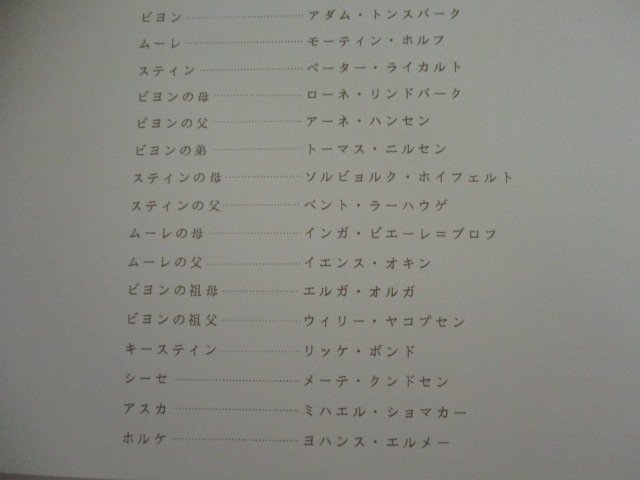 ビヨン………………アダム・トンスバーク
ムーレ………………モーティン・ホルフ
スティン………………ペーター・ライカルト
ビヨンの母………………ローネ・リンドバーク
ビヨンの父………………アーネ・ハンセン
ビヨンの弟………………トーマス・ニルセン
スティンの母………………ソルビョルク・ホイフェルト
スティンの父………………ベント・ラーハウゲ
ムーレの母………………インガ・ビエーレ＝ブロフ
ムーレの父………………イエンス・オキン
ビヨンの祖母………………エルガ・オルガ
ビヨンの祖父………………ウィリー・ヤコプセン
キースティン………………リッケ・ボンド
シーセ………………メーテ・クンドセン
アスカ………………ミハエル・ショマカー
ホルケ………………ヨハンス・エルメー